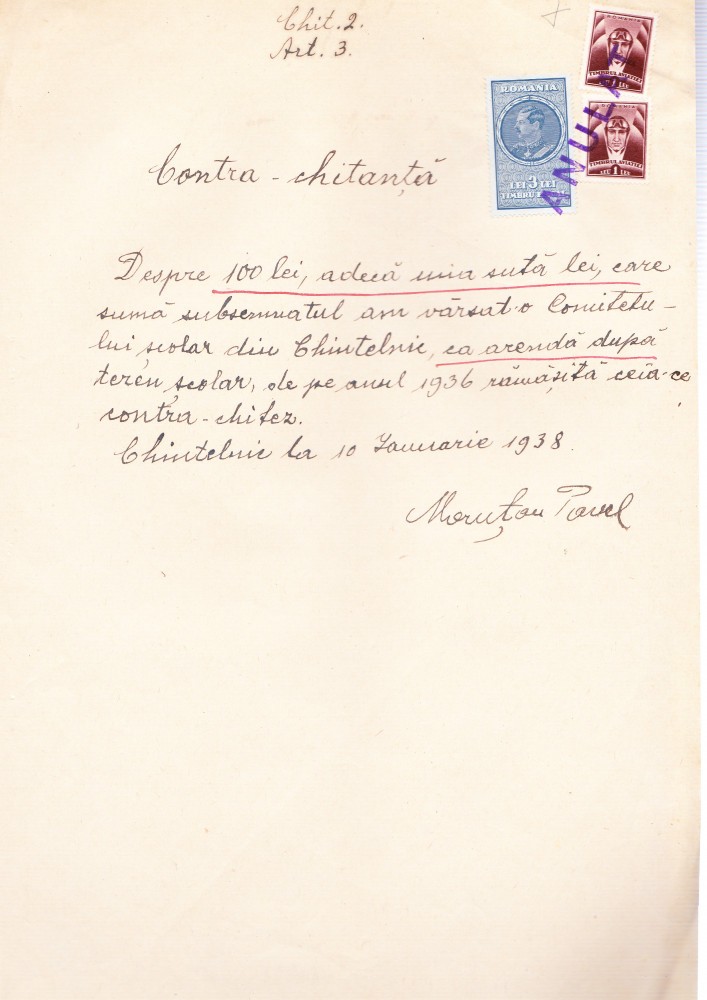 Chit. 2.
Art. 3.
ROMANIA
TIMBRUL AVIATIEI
1 LEU
ROMANIA
LEI 3 LEI
TIMBRU
ROMANIA
TIMBRUL AVIATIEI
LEU 1 LEU
ANULAT
Contra-chitanță
Despre 100 lei, adecă una sută lei, care
sumă subsemnatul am vărsat-o Comitetu-
lui școlar din Chintelnic, ca arendă după
teren școlar, de pe anul 1936 rămășită ceia-ce
contra-chitez.
Chintelnic la 10 Ianuarie 1938.
Moruțan Pavel